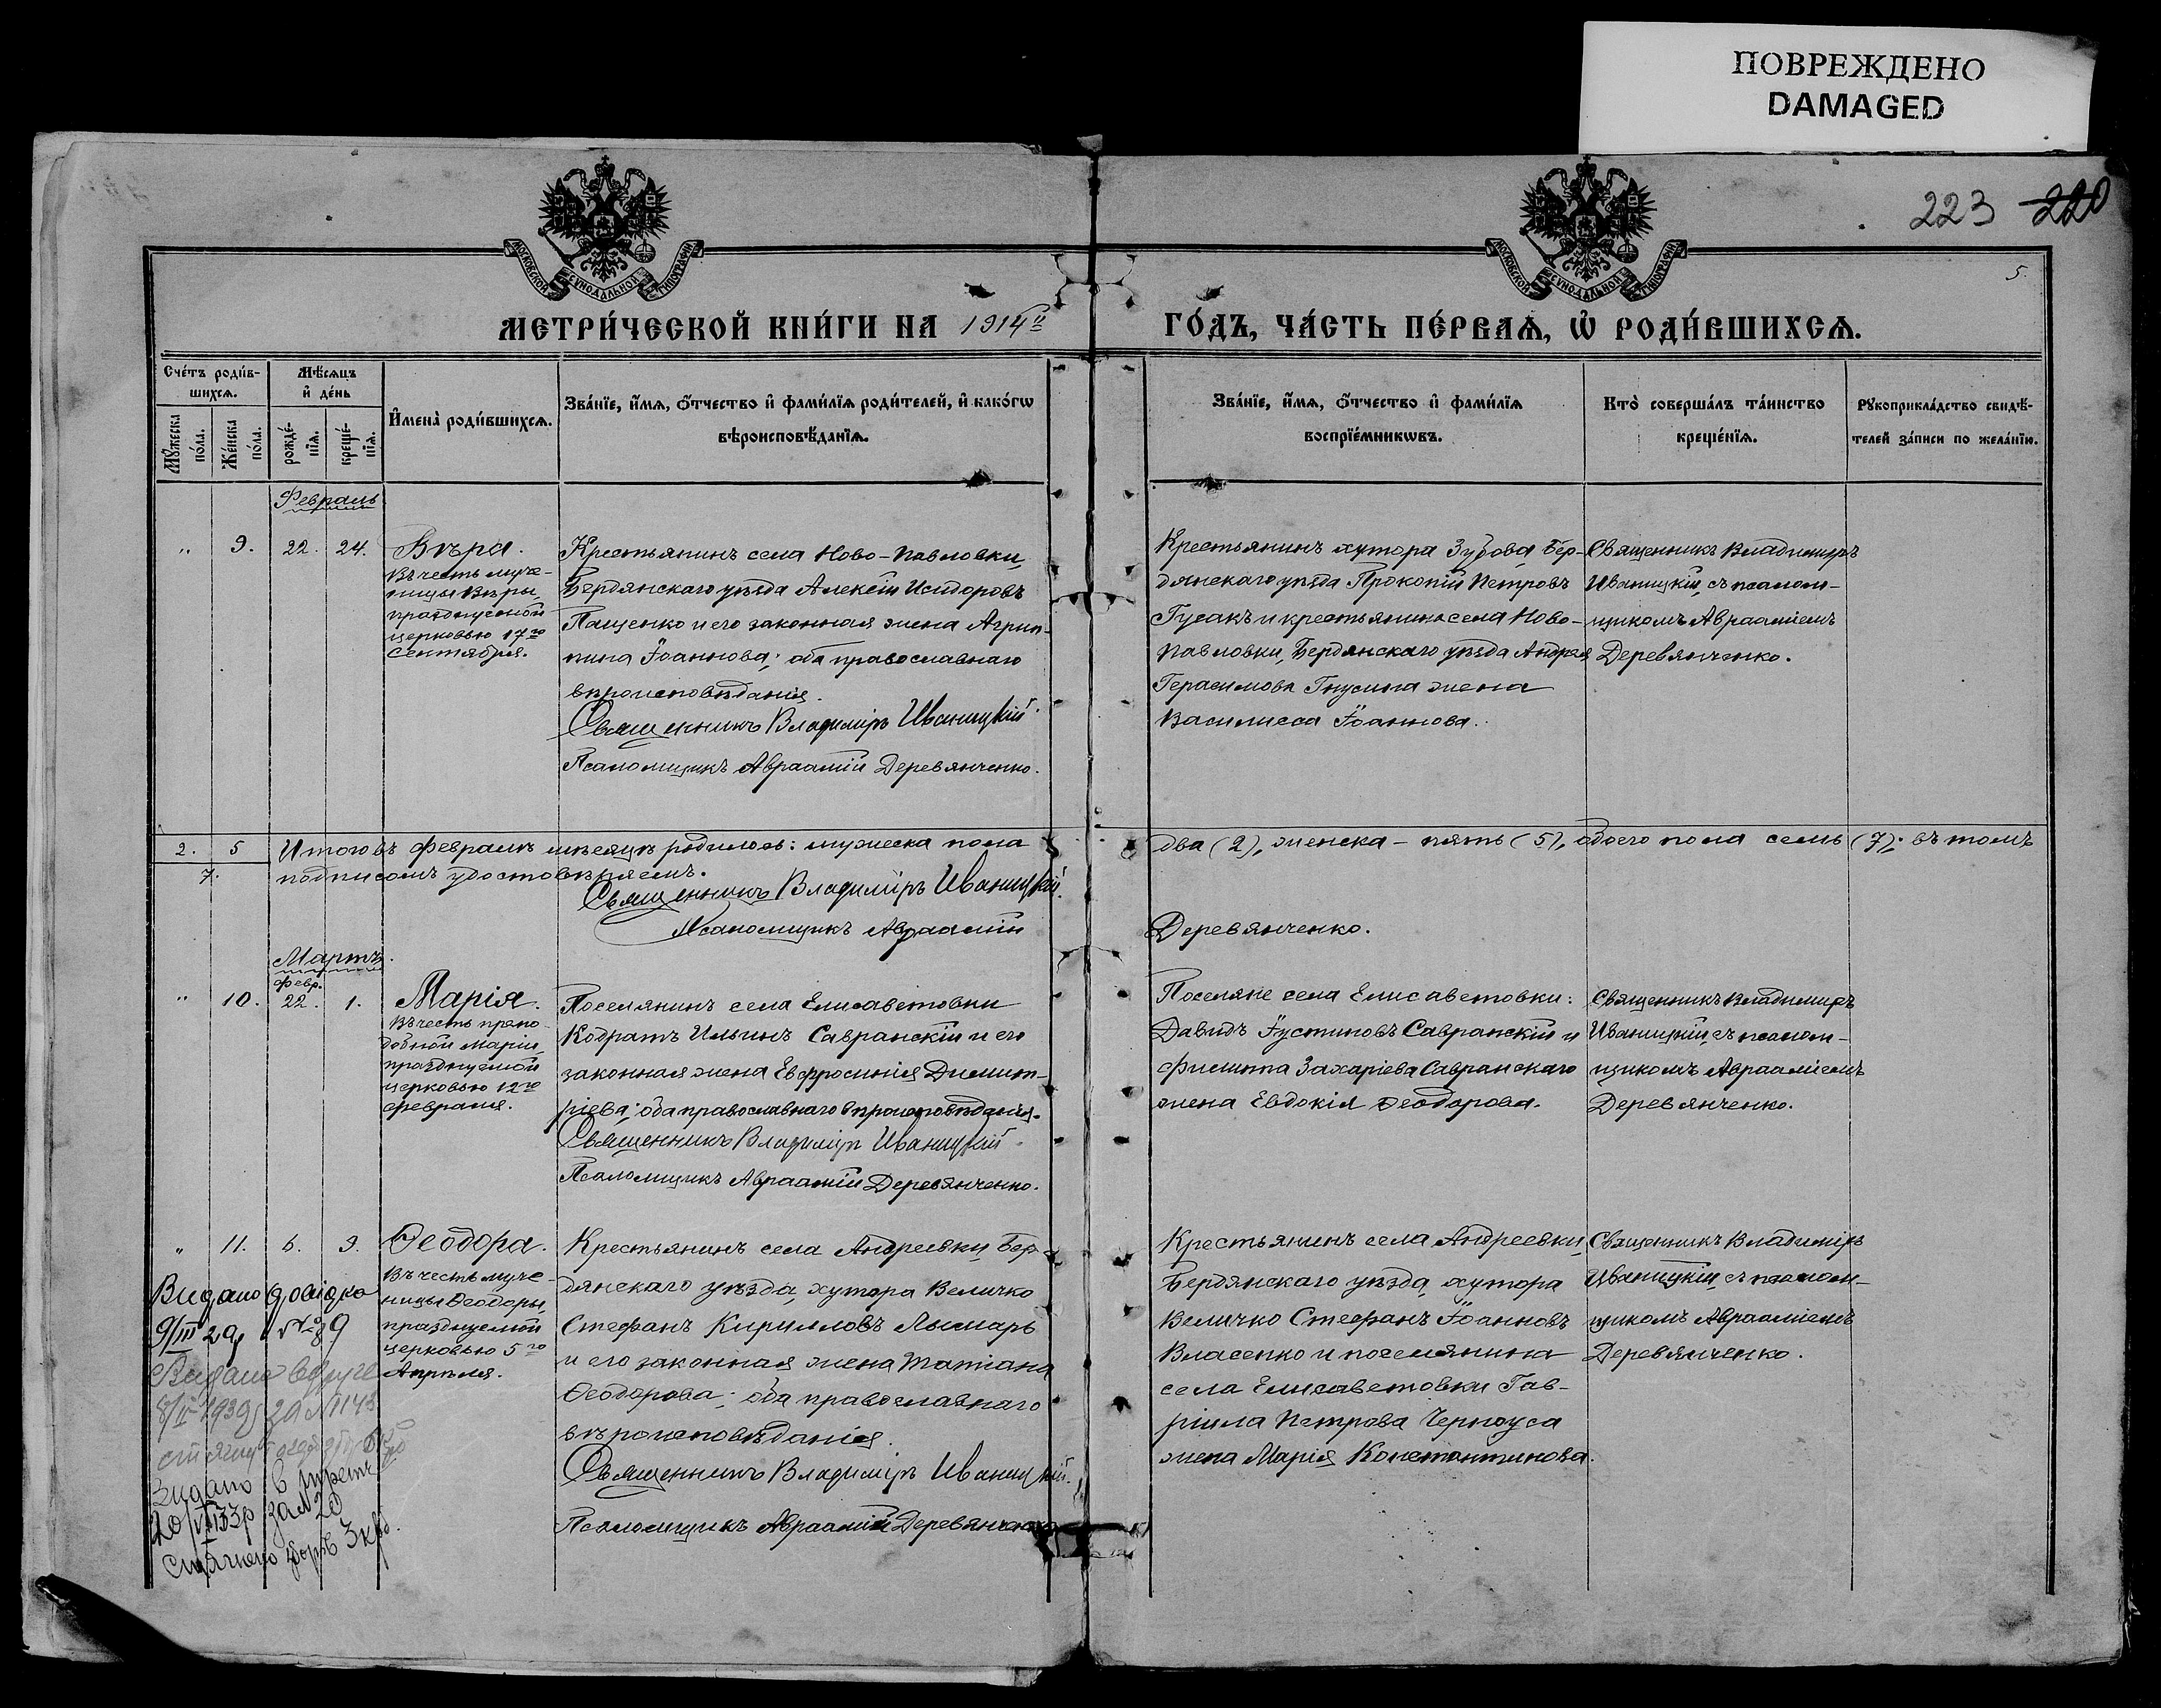 ПОВРЕЖДЕНО
DAMAGED
223 220
5.
МОСКОВСКОЙ СѴНОДАЛЬНОЙ ТИПОГРАФІИ
МОСКОВСКОЙ СѴНОДАЛЬНОЙ ТИПОГРАФІИ
МЕТРИ́ЧЕСКОЙ КНИ́ГИ НА 1914й
ГО́ДЪ, ЧА́СТЬ ПЕ́РВАѦ, Ѽ РОДИ́ВШИХСѦ.
Сче́тъ роди́в-
шихсѧ.
Мꙋ́жеска по́ла.
Же́нска по́ла.
Мѣ́сѧцъ
и҆ де́нь
рожде́-нїѧ.
креще́-нїѧ.
И҆мена̀ роди́вшихсѧ.
Зва́нїе, и҆́мѧ, ѻ҆́тчество и҆ фами́лїѧ роди́телей, и҆ како́гѡ
вѣроисповѣ́данїѧ.
Зва́нїе, и҆́мѧ, ѻ҆́тчество и҆ фами́лїѧ
воспрїе́мникѡвъ.
Кто̀ соверша́лъ та́инство
креще́нїѧ.
Рꙋкоприкла́дство свидѣ́-
телей за́писи по жела́нїю.
Февраль
" 9. 22. 24.
Вѣра.
Въ честь муче-
ницы Вѣры,
празднуемой
церковью 17го
Сентября.
Крестьянинъ села Ново-Павловки,
Бердянскаго уѣзда Алексій Исидоровъ
Пащенко и его законная жена Агрип-
пина Іоаннова; оба православнаго
вѣроисповѣданія.
Священникъ Владиміръ Иваницкій
Псаломщикъ Авраамій Деревянченко.
Крестьянинъ хутора Зубова, Бер-
дянскаго уѣзда Прокопій Петровъ
Гусакъ и крестьянина села Ново-
Павловки, Бердянскаго уѣзда Андрея
Герасимова Гнусина жена
Василисса Іоаннова.
Священникъ Владиміръ
Иваницкій, съ псалом-
щикомъ Авраміемъ
Деревянченко.
2. 5
7.
Итого въ Февралѣ мѣсяцѣ родилось: мужеска пола
два (2), женска – пять (5), обоего пола семь (7); въ томъ
подписомъ удостовѣряемъ.
Священникъ Владиміръ Иваницкій.
Псаломщикъ Авраамій
Деревянченко.
Мартъ.
Февр.
" 10. 22. 1.
Марія.
Въ честь препо-
добной Маріи,
празднуемой
церковью 12го
февраля.
Поселянинъ села Елисаветовки
Кодратъ Ильинъ Савранскій и его
законная жена Евфросинія Димит-
ріева; оба православнаго вѣроисповѣданія.
Священникъ Владиміръ Иваницкій.
Псаломщикъ Авраамій Деревянченко.
Поселяне села Елисаветовки:
Давидъ Іустиновъ Савранскій и
Филиппа Захаріева Савранскаго
жена Евдокія Ѳеодорова.
Священникъ Владиміръ
Иваницкій, съ псалом-
щикомъ Авраміемъ
Деревянченко.
" 11. 6. 9.
Ѳеодора.
Въ честь муче-
ницы Ѳеодоры,
празднуемой
церковью 5го
Апрѣля.
Крестьянинъ села Андреевки, Бер-
дянскаго уѣзда, хутора Величко
Стефанъ Кирилловъ Лымарь
и его законная жена Татіана
Ѳеодорова; оба православнаго
вѣроисповѣданія.
Священникъ Владиміръ Иваницкій.
Псаломщикъ Авраамій Деревянченко
Крестьянинъ села Андреевки,
Бердянскаго уѣзда, хутора
Величко Стефанъ Іоанновъ
Власенко и поселянина
села Елисаветовки Гав-
ріила Петрова Черноуса
жена Марія Константинова.
Священникъ Владиміръ
Иваницкій, съ псалом-
щикомъ Авраміемъ
Деревянченко.
Видано довідка
9/III 29
Видано вдруге
Видано в трете
за № 20
Стягнено